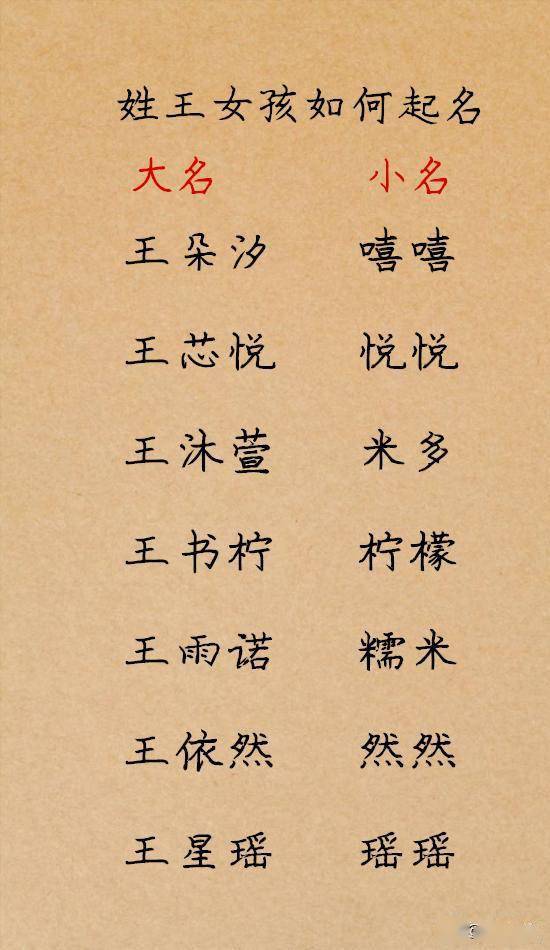 姓王女孩如何起名
大名 小名
王朵汐 嘻嘻
王芯悦 悦悦
王沐萱 米多
王书柠 柠檬
王雨诺 糯米
王依然 然然
王星瑶 瑶瑶